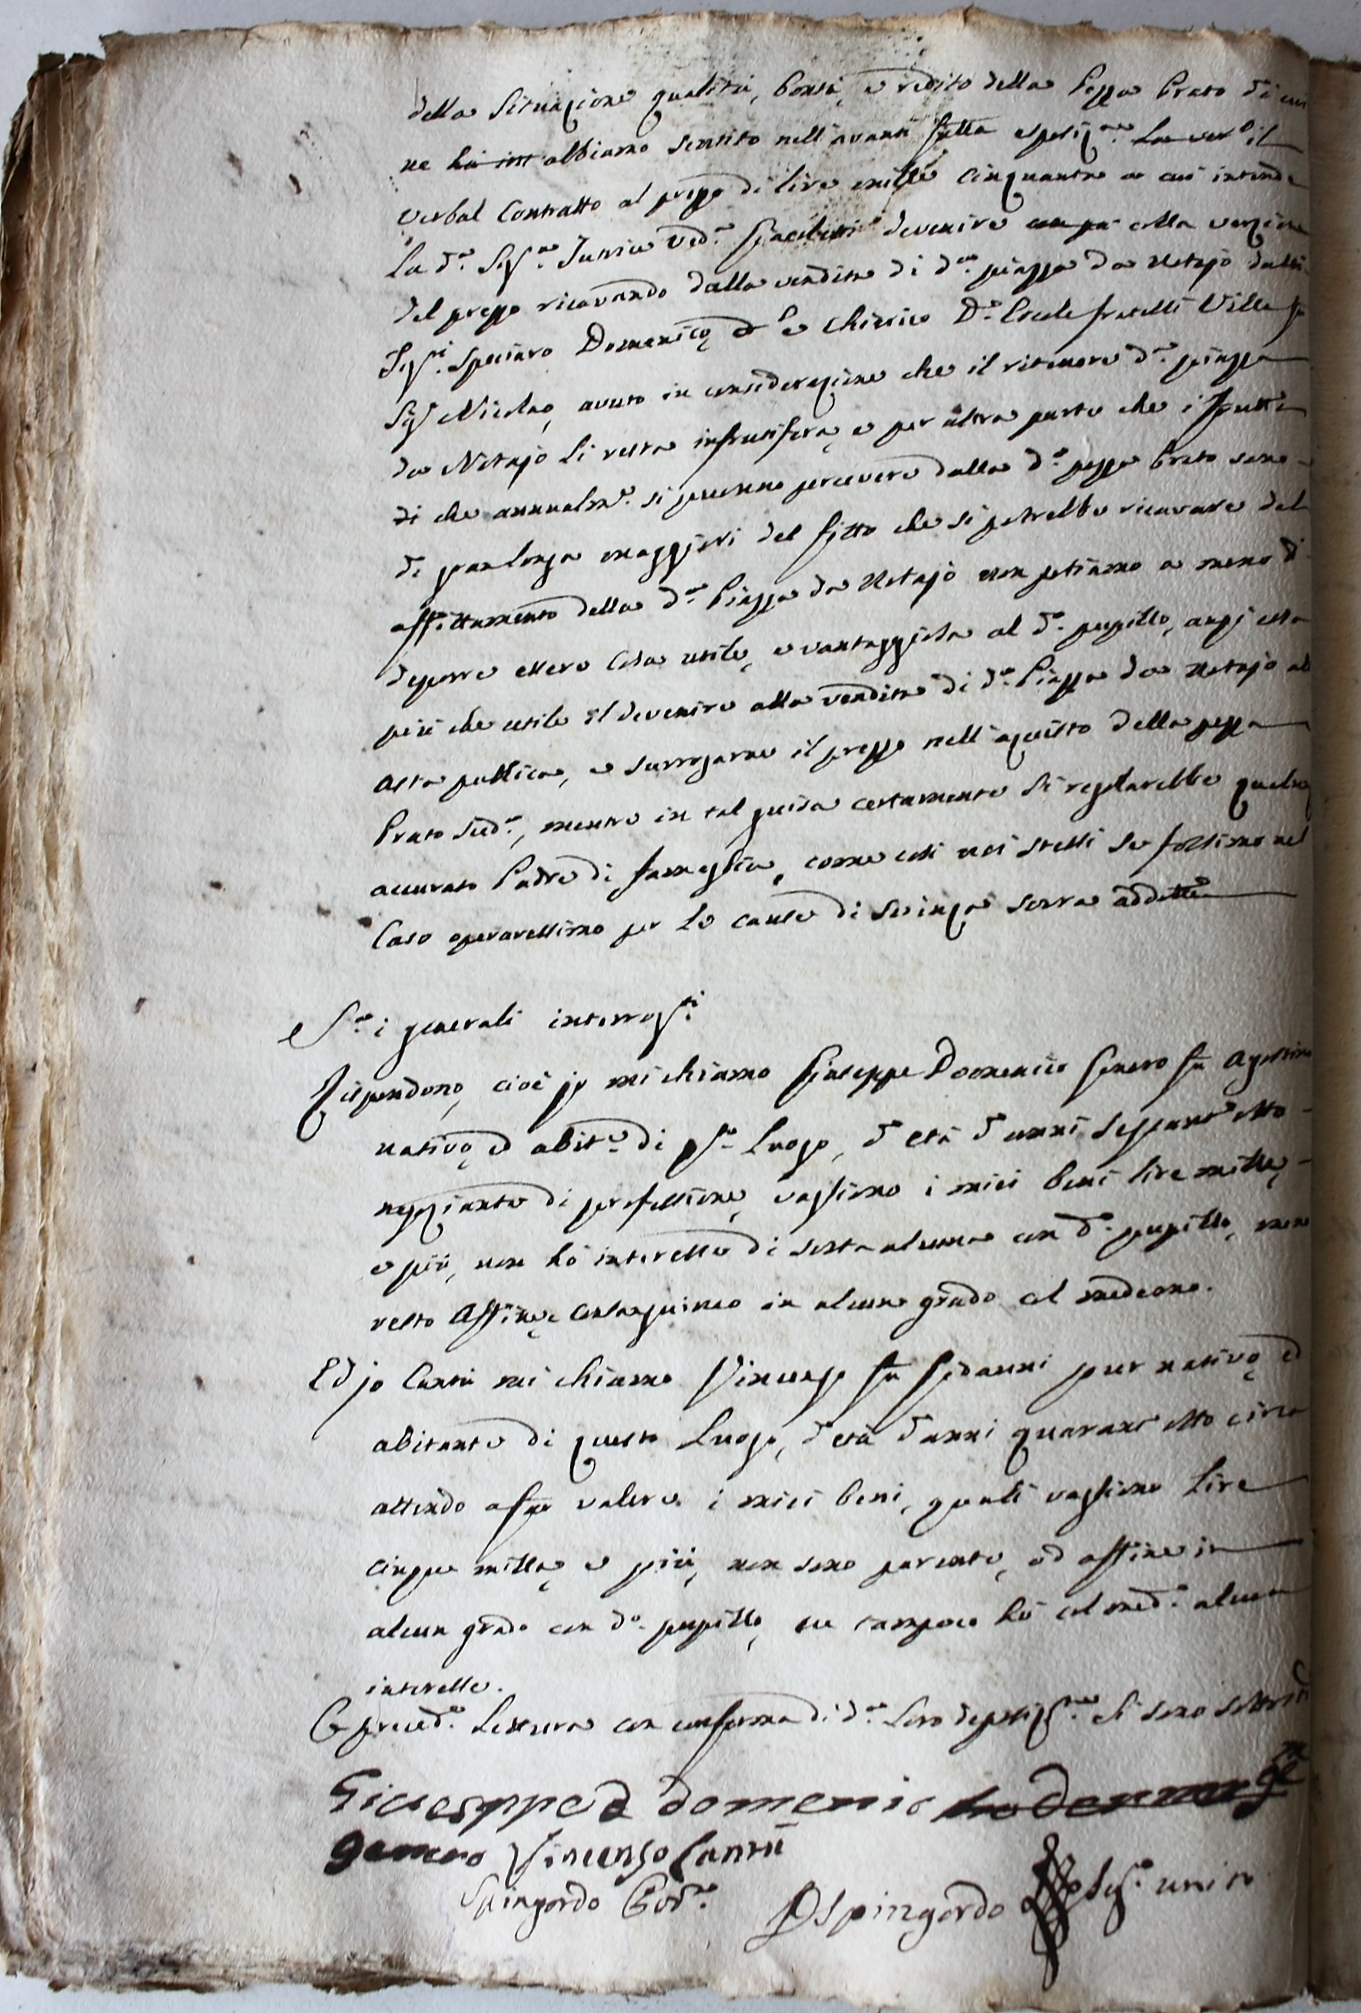 della Situazione qualità, bontà, e redito della Pezza Prato di cui
ne abbiamo sentito nell'avanti fatta esposiz.ne il
verbal Contratto al prezzo di lire mille Cinquanta a cui intende
La d.a Sig.ra Tutrice devenire colla
del prezzo ricavando dalla vendita di d.a piazza da Notajo dalli
Sig.ri Domenico e Chierico D. fratelli Villa fu
Sig.r Nicolao, avuto in considerazione che il ritenere d.a piazza
da Notajo li resta infrutifera, e per altra parte che i frutti
di che annualm.e si percevere dalla d.a pezza Prato sono
di gran longa maggiori del fitto che si potrebbe ricavare del
affittamento della d.a Piazza da Notajo non potiamo a meno di
deporre essere cosa utile, e vantaggiosa al d.o pupillo, anzi essa
più che utile il devenire alla vendita di d.a Piazza da Notajo al
asta publica, e surrogarne il prezzo nell'aquisto della pezza
Prato sud.a, mentre in tal guisa certamente si regolarebbe qualonq
accurato Padre di fameglia, come così noi stessi se fossimo nel
Caso operaressimo per le cause di Scienza sovra addotte
S.a i generali interrog.ti
Rispondono, cioè jo mi chiamo Giuseppe Domenico Genero fu Agostino
nativo, e abit.e di q.to Luogo, d'età d'anni sessant'otto
negoziante di professione, vagliono i miei beni lire mille,
e più, non hò interesse di sorta alcuna con d.o pupillo, meno
resto Affine, e Consanguineo in alcun grado col medemo.
Ed jo Cantù mi chiamo Vincenzo fu Gioanni pur nativo, ed
abitante di questo Luogo, d'età d'anni quarant'otto circa
attendo a far valere i miei beni, quali vagliono Lire
cinque mille, e più, non sono parente, od affine in
alcun grado con d.o pupillo, ne tampoco hò col med.o alcun
interesse.
E preced.e Lettura con conferma di d.a Loro deposiz.ne si sono sottoscritti
Giuesppe d domenico
genero Vincenzo Cantù
Spingardo
Spingardo Seg.o unito